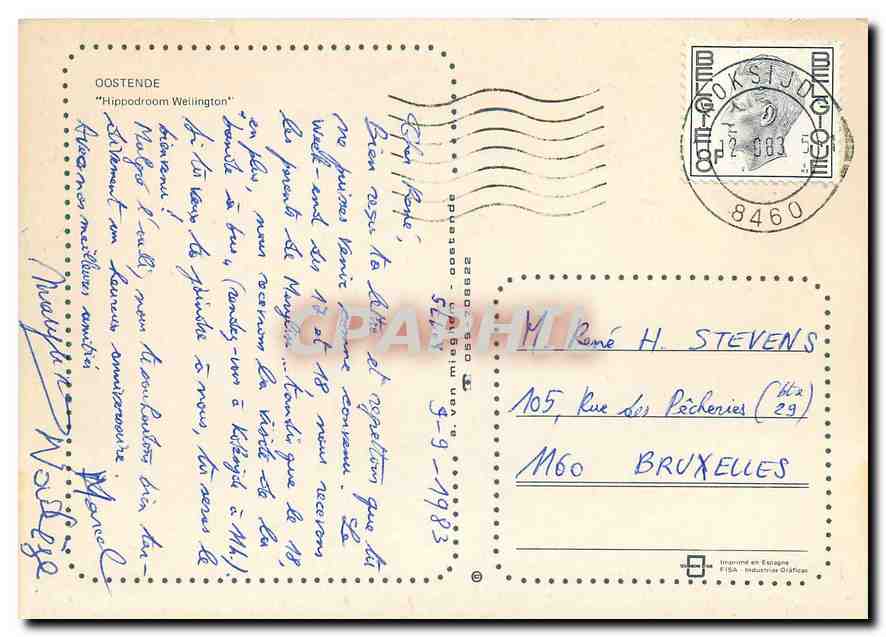 OOSTENDE
"Hippodroom Wellington"
9-9-1983
Cher René,
Bien reçu ta lettre et regrettons que tu
ne puisses venir comme convenu. Le
week-end des 17 et 18, nous recevons
les parents de Marylin... tandis que le 18,
en plus, nous recevons la visite de la
"bande à bus" (rendez-vous à à 11h.)
Si tu veux te joindre à nous, tu seras le
bienvenu!
Malgré l'oubli, nous te souhaitons bien tar-
divement un heureux anniversaire.
Avec nos meilleures amitiés
Marcel
Nadège
e. van mieghem - oostende
059/708622
CPAPHIL
BELGIE
BELGIQUE
KOKSIJDE
12 983
8460
M. René H. STEVENS
105, Rue des Pêcheries (bte 29)
1160 BRUXELLES
Imprimé en Espagne
FISA - Industrias Gráficas